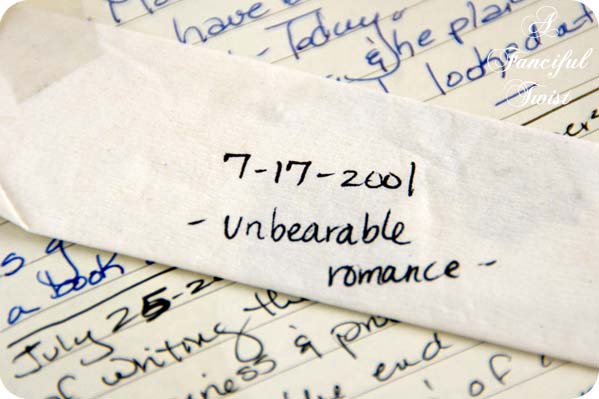 have
- Today
& he plan
I looked at
A
Fanciful
Twist
7-17-2001
- unbearable
romance -
a book
July 25-2
of writing th
ness & pro
the end
of